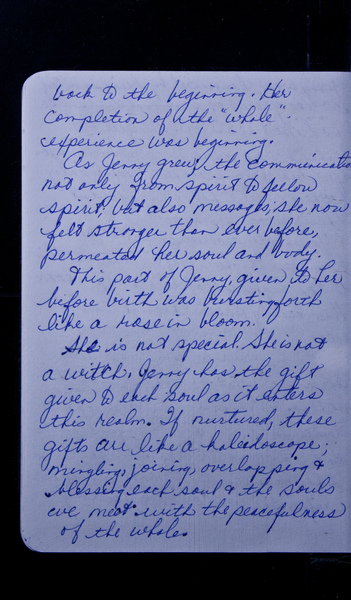 back to the beginning. Her
completion of the "whole"
experience was beginning.
As Jenny grew, the communicatio
not only from spirit to fellow
spirit, but also messages, she now
felt stronger than ever before,
permeated her soul and body.
This part of Jenny, given to her
before birth was bursting forth
like a rose in bloom.
She is not special. She is not
a witch. Jenny has the gift
given to each soul as it enters
this realm. If nurtured, these
gifts are like a kaleidoscope;
mingling, joining, overlapping &
blessing each soul & the souls
we meet with the peacefulness
of the whole.